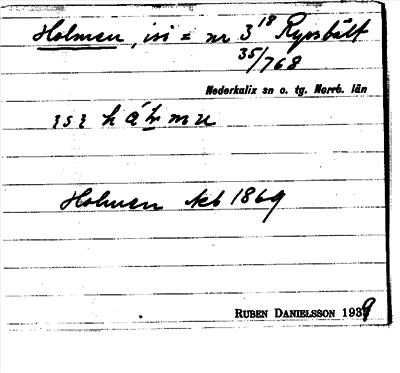 Holmen, isi = nr 3¹⁸ Ryssbält
35/768
Nederkalix sn o. tg. Norrb. län
Holmen Jkb 1869
RUBEN DANIELSSON 1939